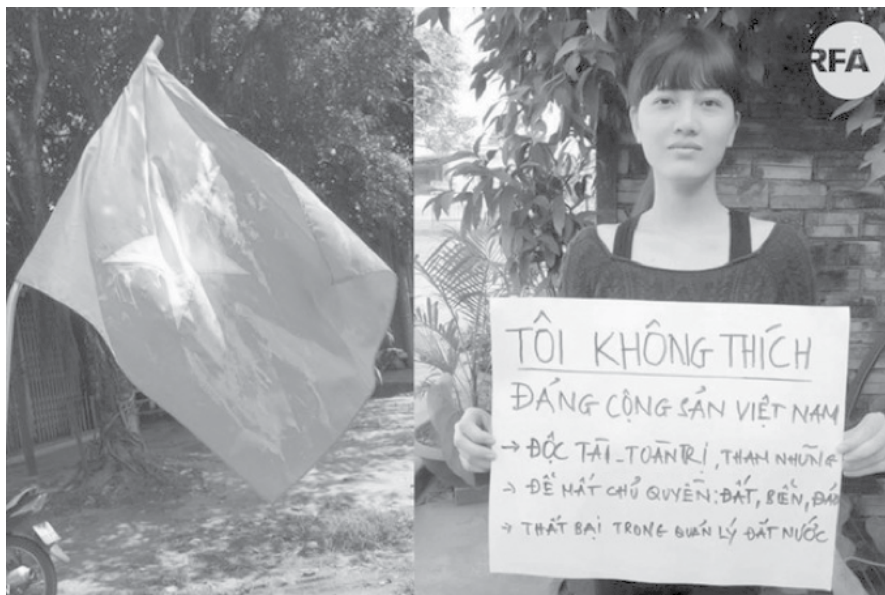 RFA
TÔI KHÔNG THÍCH
ĐẢNG CỘNG SẢN VIỆT NAM
→ ĐỘC TÀI - TOÀN TRỊ, THAM NHŨNG
→ ĐỂ MẤT CHỦ QUYỀN: ĐẤT, BIỂN, ĐẢO
→ THẤT BẠI TRONG QUẢN LÝ ĐẤT NƯỚC